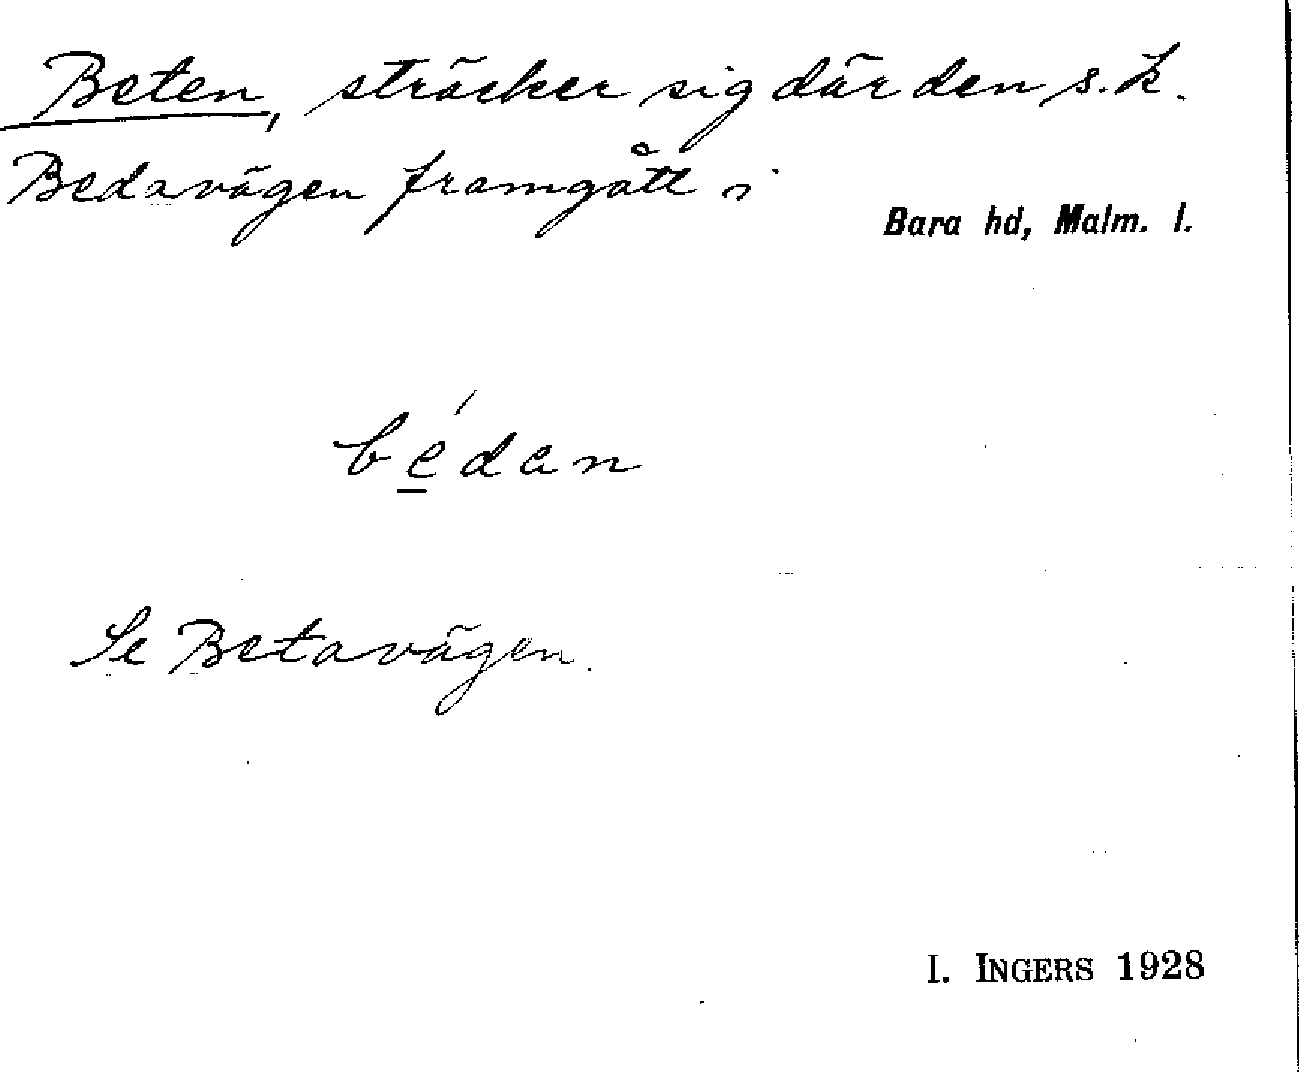 Beten, sträcker sig där den s.k.
Bedavägen framgått i
Bara hd, Malm. l.
bédan
Se Betavägen.
I. INGERS 1928